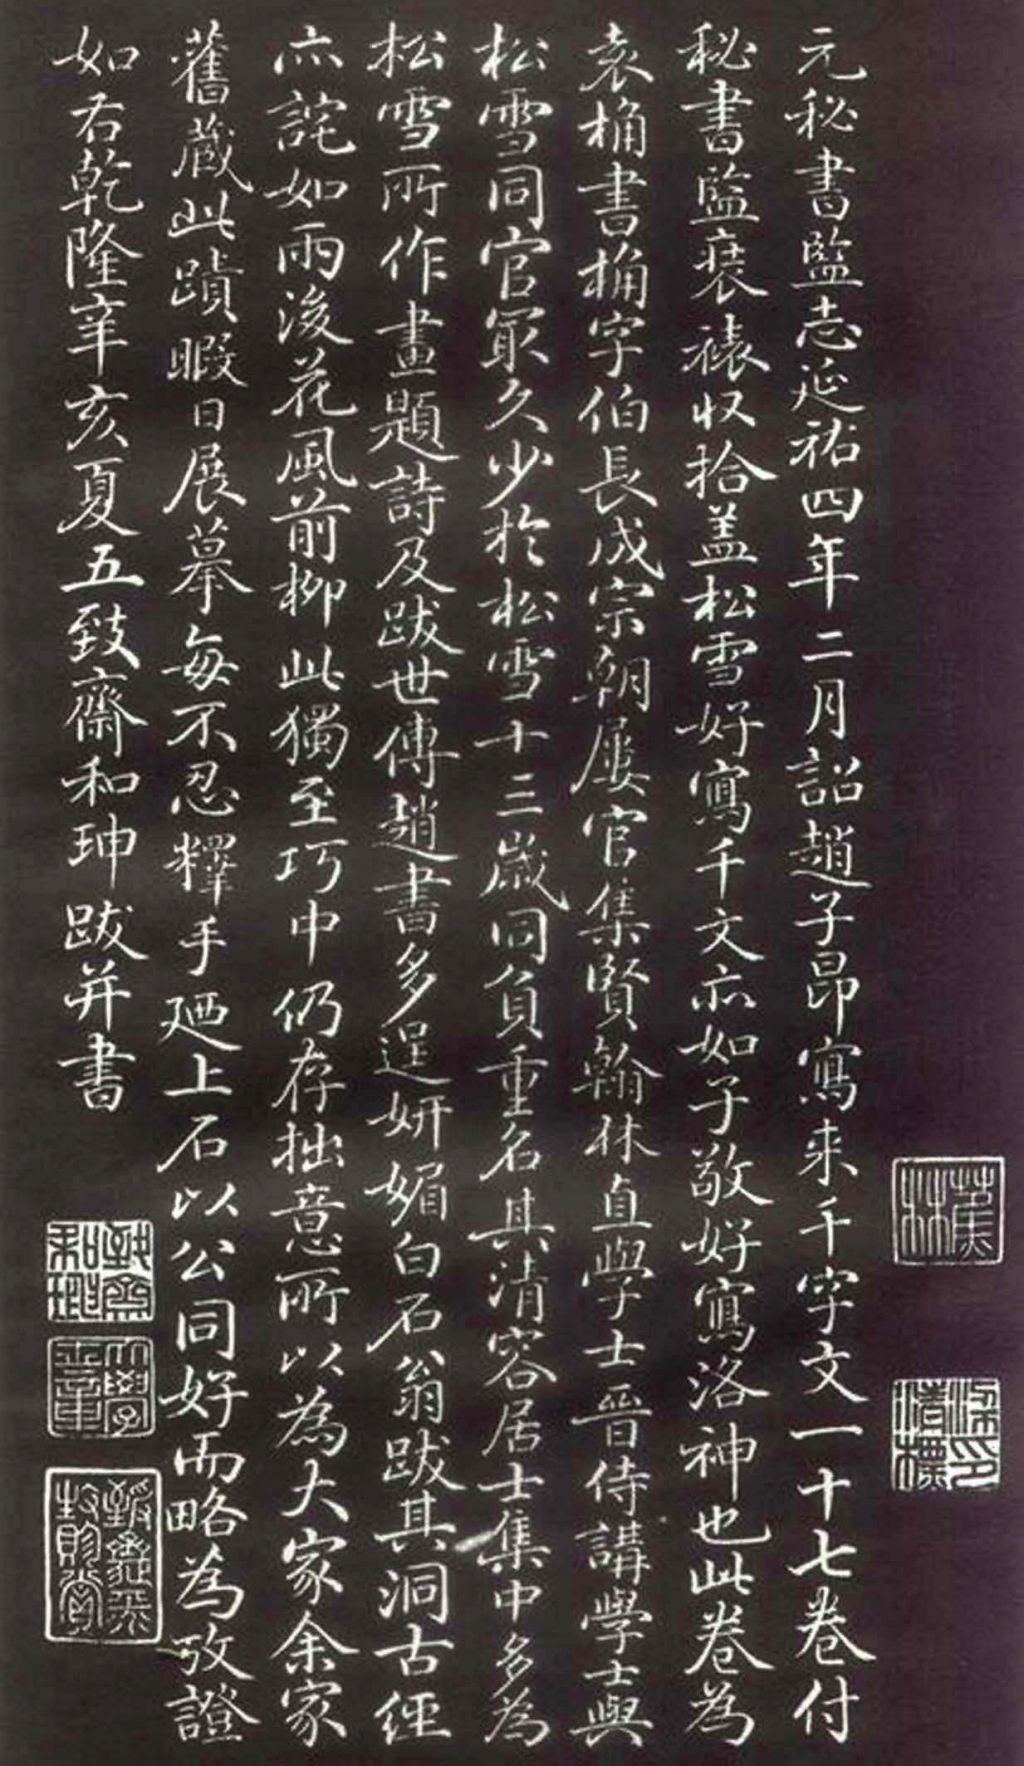 元秘書監志延祐四年二月詔趙子昂寫来千字文一十七卷付
秘書監裝裱収拾盖松雪好寫千文亦如子敬好寫洛神也此卷為
袁桷書桷字伯長成宗朝屢官集賢翰林直學士晉侍講學士與
松雪同官冣久少於松雪十三歲同負重名其清容居士集中多為
松雪所作畫題詩及跋世傳趙書多逞妍媚白石翁跋其洞古經
亦詫如雨後花風前柳此獨至巧中仍存拙意所以為大家余家
舊蔵此蹟暇日展摹每不忍釋手廼上石以公同好而略為攷證
如右乾隆辛亥夏五致齋和珅跋并書
蕉林